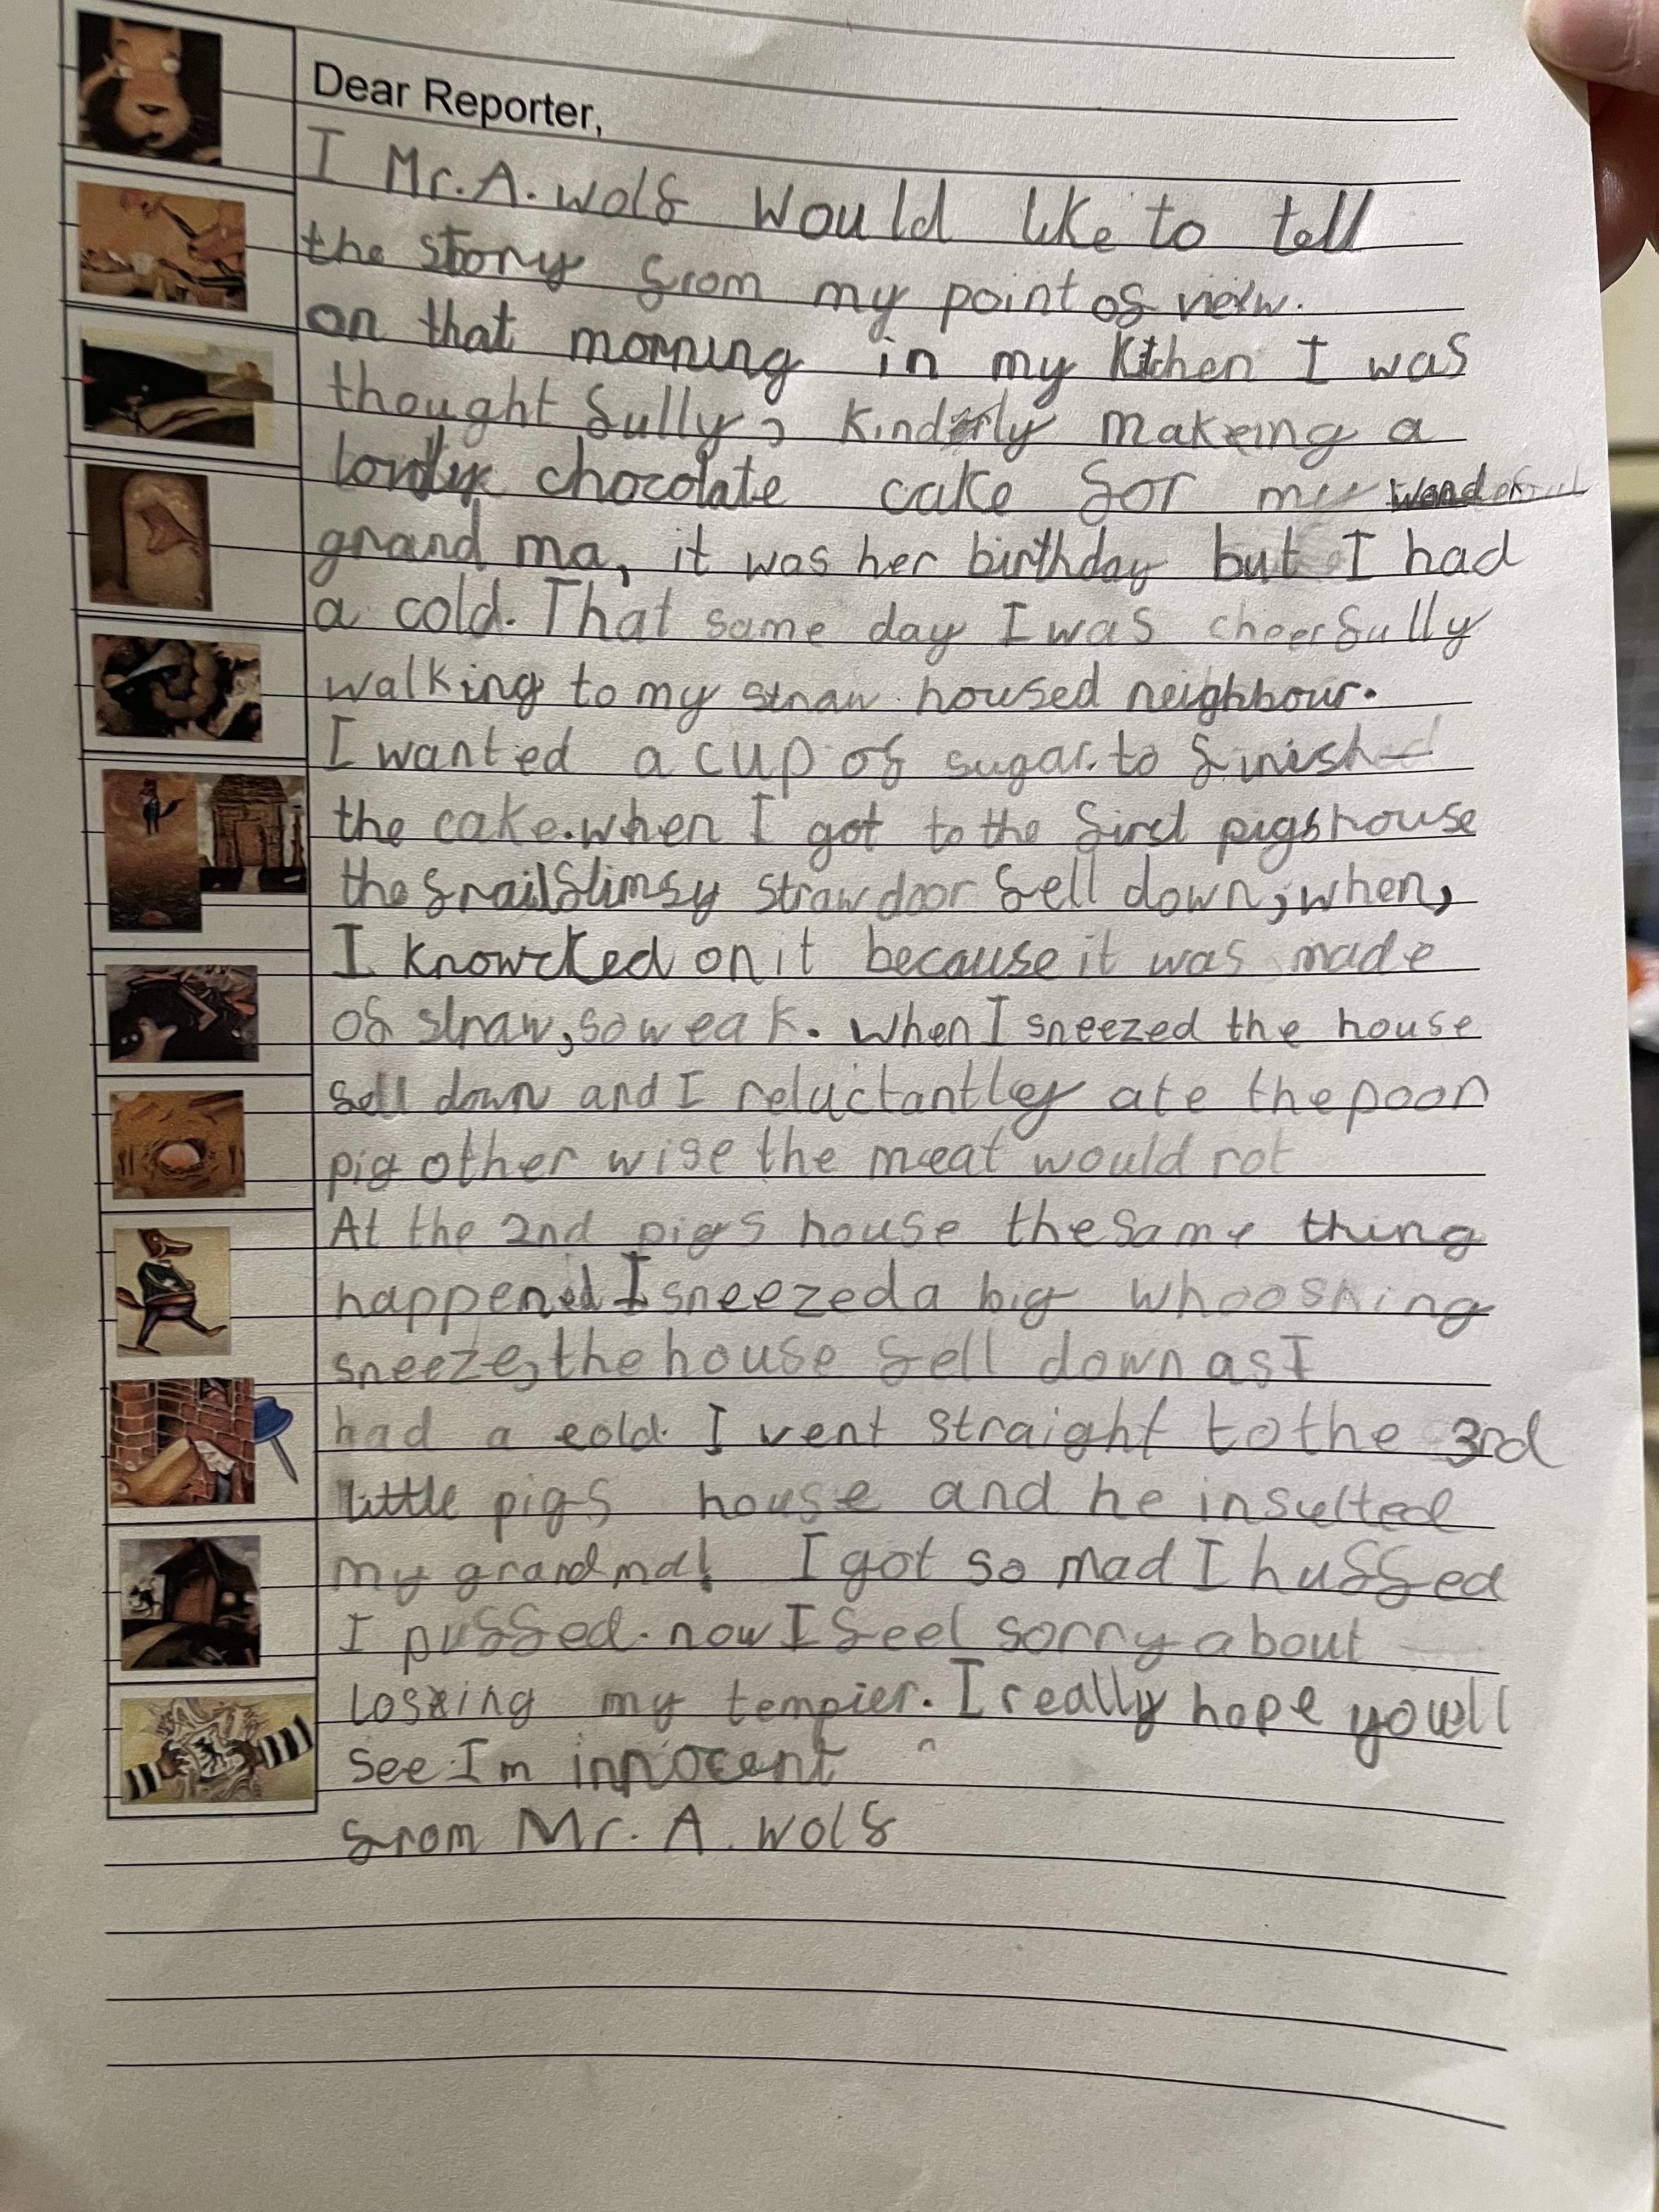 Dear Reporter,
I Mr. A. wolf would like to tell
the story from my point of view.
on that morning in my kitchen I was
thought fully, kindly makeing a
lovely chocolate cake for my wonderful
grand ma, it was her birthday but I had
a cold. That same day I was cheerfully
walking to my straw housed neighbour.
I wanted a cup of sugar. to finish
the cake. when I got to the first pigs house
the frail flimsy straw door fell down, when,
I knowcked on it because it was made
of straw, so weak. when I sneezed the house
fell down and I reluctantley ate the poor
pig other wise the meat would rot
At the 2nd pigs house the same thing
happened I sneezed a big whooshing
sneeze, the house fell down as I
had a cold. I went straight to the 3rd
little pigs house and he insulted
my grandma! I got so mad I huffed
I puffed. now I feel sorry about
losing my tempier. I really hope youll
see I'm innocent
from Mr. A. wolf